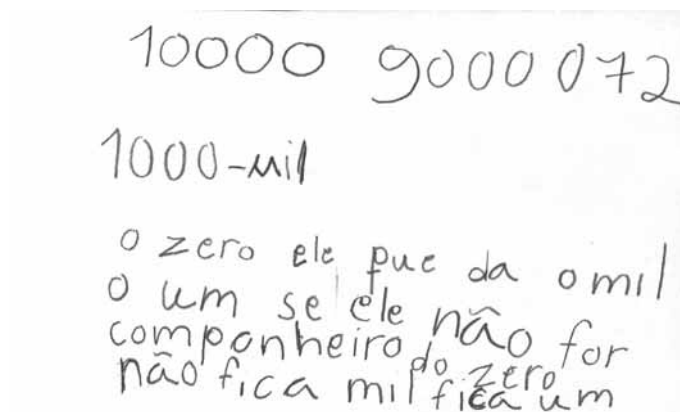 10000 9000 072
1000-mil
o zero ele que da o mil
o um se ele não for
companheiro do zero
não fica mil fica um